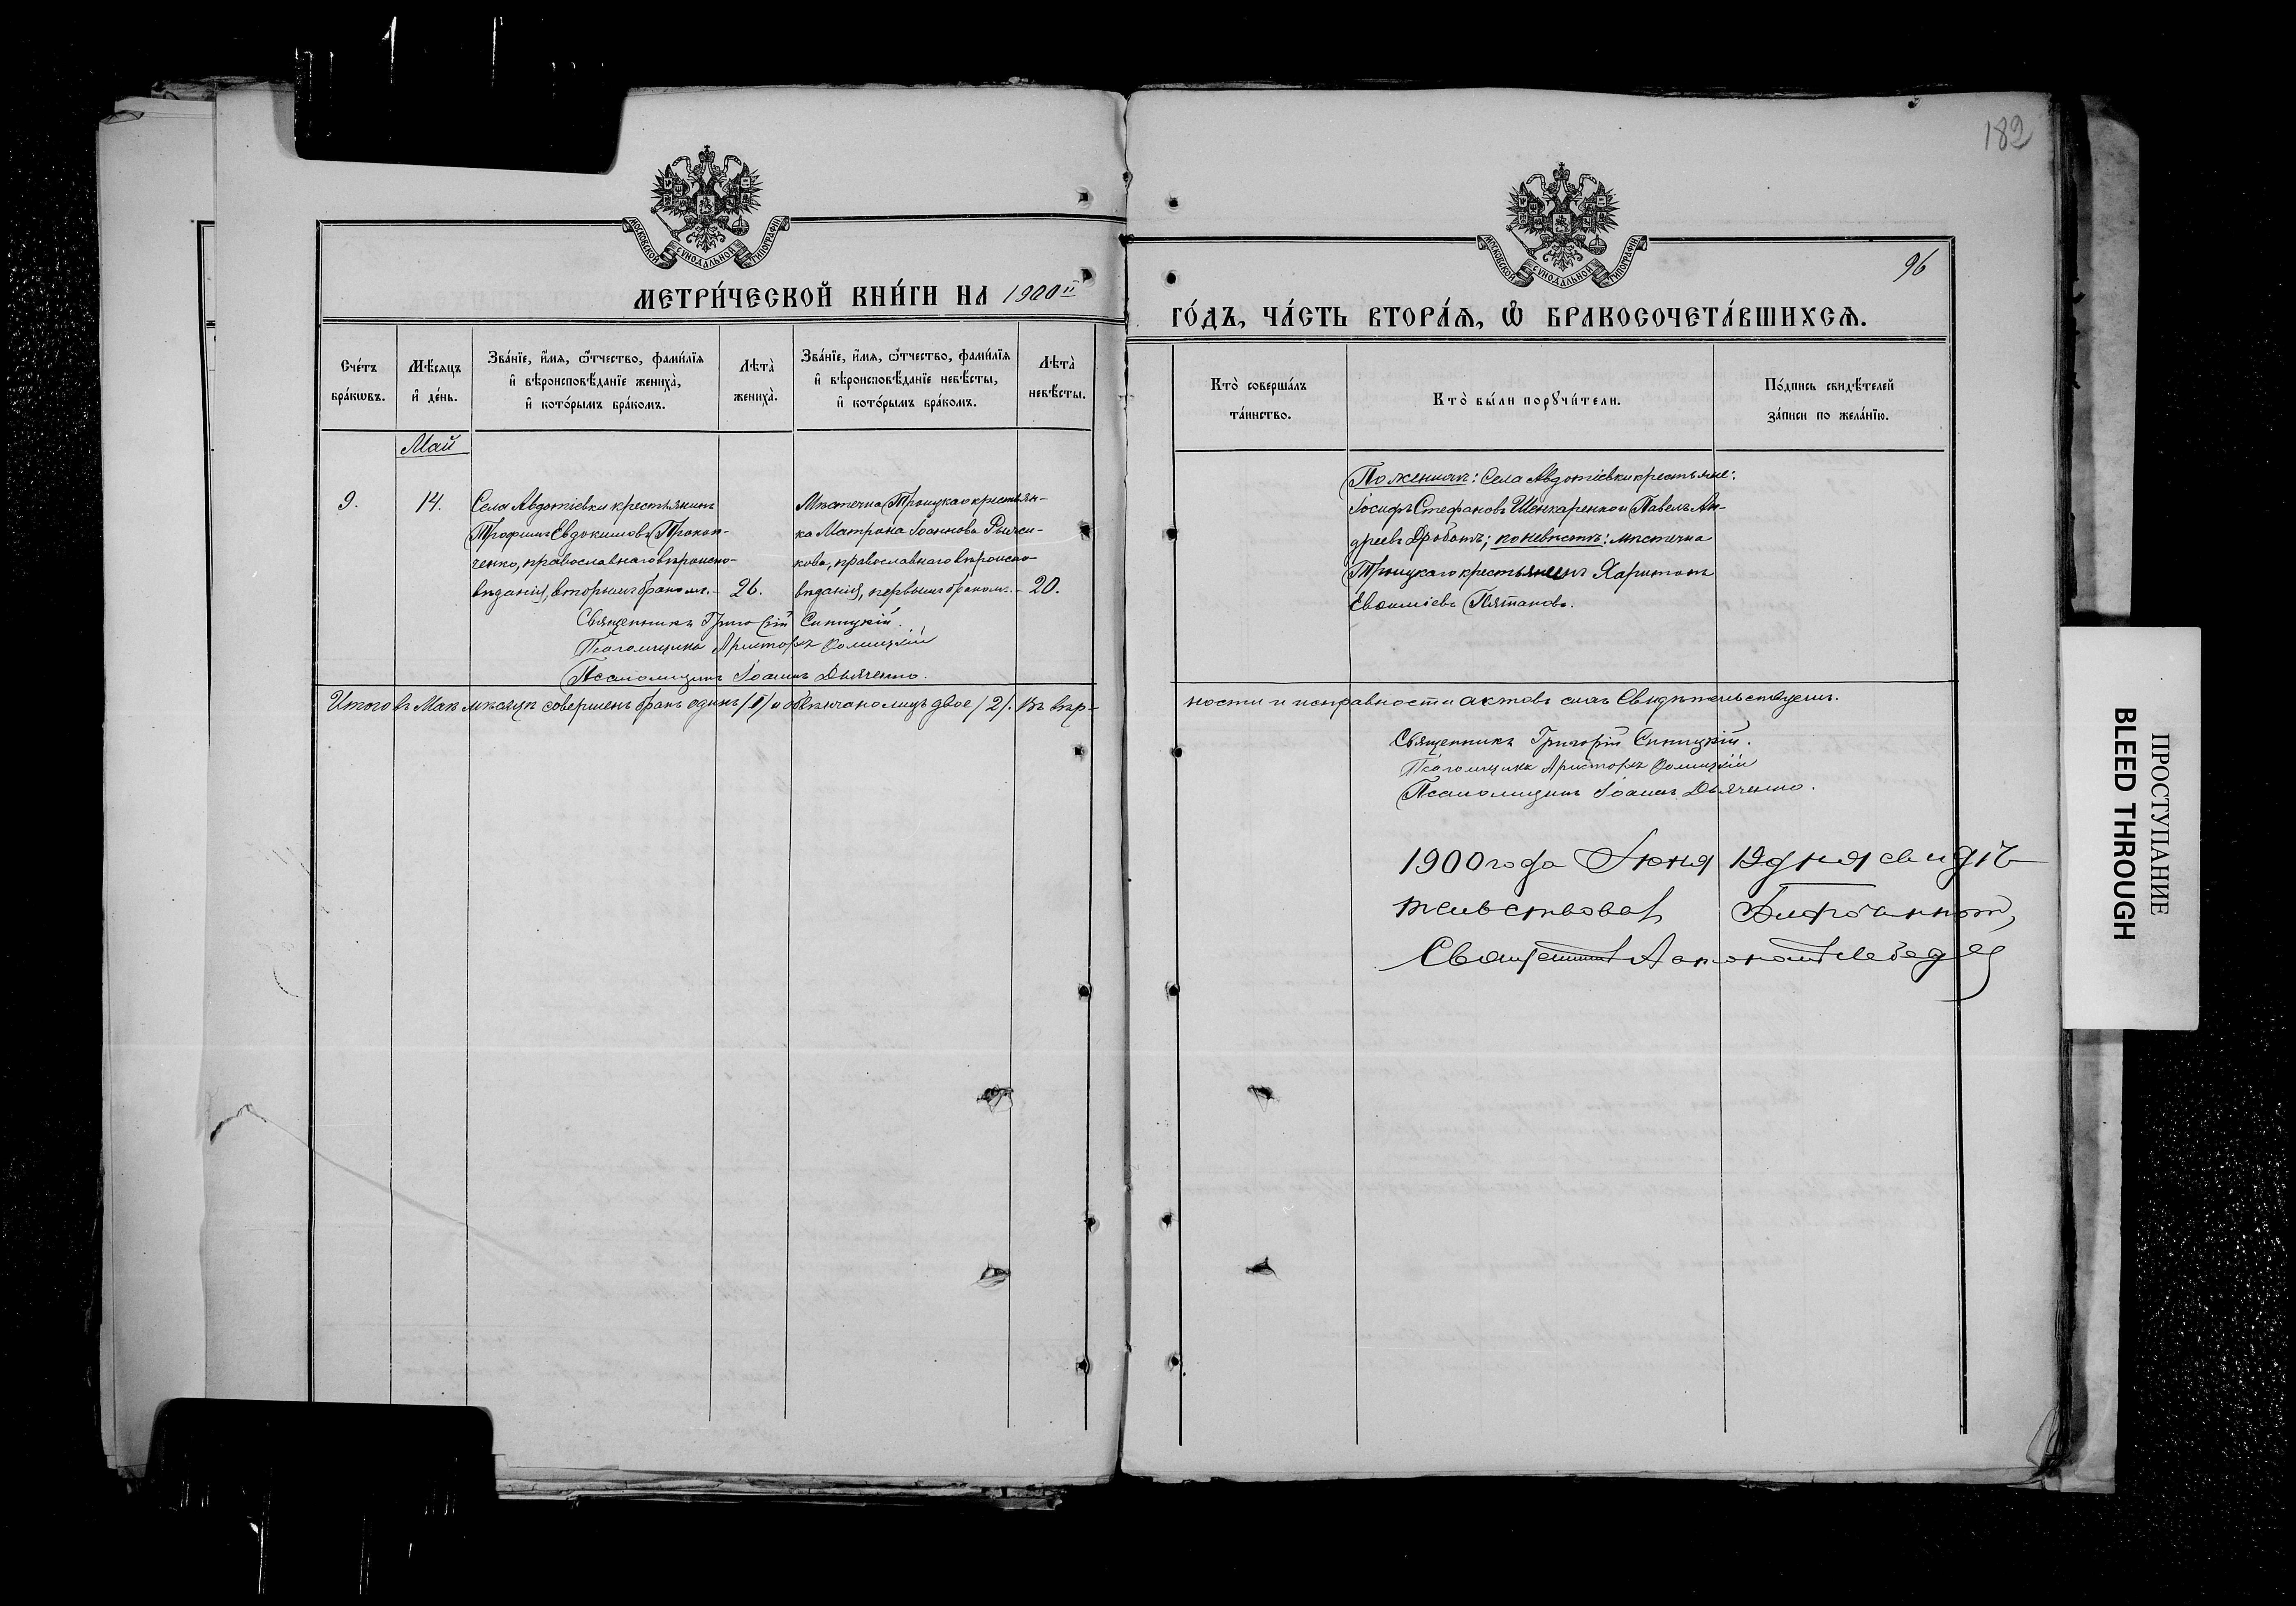 182
МОСКОВСКОЙ СѴНОДАЛЬНОЙ ТИПОГРАФІИ
МОСКОВСКОЙ СѴНОДАЛЬНОЙ ТИПОГРАФІИ
96
МЕТРИ́ЧЕСКОЙ КНИ́ГИ НА 1900й
ГО́ДЪ, ЧА́СТЬ ВТОРА́Ѧ, Ѽ БРАКОСОЧЕТА́ВШИХСѦ.
Сче́тъ
бра́кѡвъ.
Мѣ́сяцъ
и҆ де́нь.
Зва́нїе, и҆́мѧ, ѻ҆́тчество, фами́лїѧ
и҆ вѣроисповѣ́данїе жениха̀,
и҆ кото́рымъ бра́комъ.
Лѣта̀
жениха̀.
Зва́нїе, и҆́мѧ, ѻ҆́тчество, фами́лїѧ
и҆ вѣроисповѣ́данїе невѣ́сты,
и҆ кото́рымъ бра́комъ.
Лѣта̀
невѣ́сты.
Кто̀ соверша́лъ
та́инство.
Кто̀ бы́ли порꙋчи́тели.
По́дпись свидѣ́телей
за́писи по жела́нїю.
Май
9.
14.
Села Авдотіевки крестьянинъ
Трофимъ Евдокимовъ Прокоп-
ченко, православнаго вѣроиспо-
вѣданія, вторымъ бракомъ.-
26.
Мѣстечка Троицкаго крестьян-
ка Матрона Іоаннова
кова, православнаго вѣроиспо-
вѣданія, первымъ бракомъ.-
20.
Священникъ Григорій Синицкій.
Псаломщикъ
Псаломщикъ Іоаннъ Дьяченко.
По женихѣ: Села Авдотіевки крестьяне:
Іосифъ Стефановъ Шенкаренко и Павелъ Ан-
дреевъ Дроботъ; по невѣстѣ: мѣстечка
Троицкаго крестьянинъ Харитонъ
Евѳиміевъ Пятаковъ.
Итого въ Маѣ мѣсяцѣ совершенъ бракъ одинъ /1/ и обвѣнчано лицъ двое /2/. Въ вѣр-
ности и исправности актовъ сихъ свидѣтельствуемъ.
Священникъ Григорій Синицкій.
Псаломщикъ
Псаломщикъ Іоаннъ Дьяченко.
1900 года Іюня 12 дня свидѣ-
тельствовалъ
Священникъ
ПРОСТУПАНИЕ
BLEED THROUGH